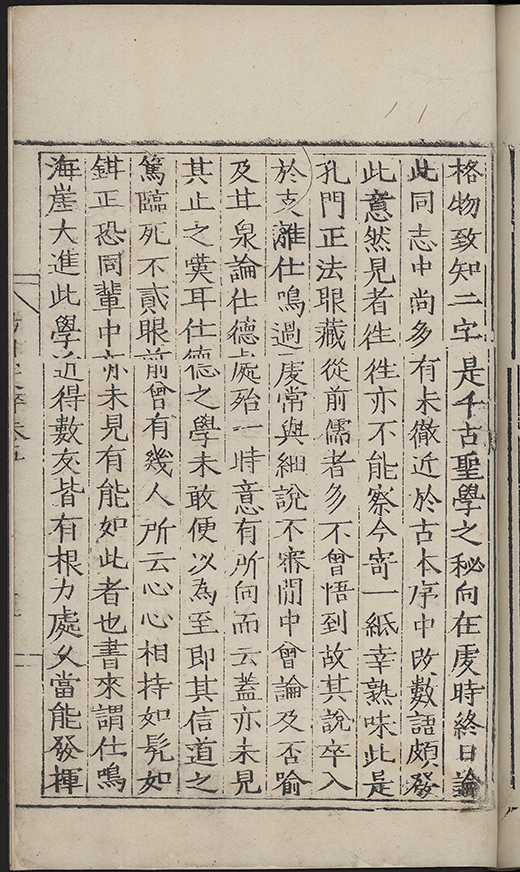 格物致知二字是千古聖學之秘向在虔時終日論
此同志中尚多有未徹近於古本序中改數語頗發
此意然見者徃徃亦不能察今寄一紙幸熟味此是
孔門正法眼藏從前儒者多不曾悟到故其說卒入
於支離仕鳴過虔常與細說不審閒中曾論及否喻
及甘泉論仕德處殆一時意有所向而云蓋亦未見
其止之嘆耳仕德之學未敢便以為至即其信道之
篤臨死不貳眼前曾有幾人所云心心相持如髡如
鉗正恐同輩中亦未見有能如此者也書來謂仕鳴
海崖大進此學近得數友皆有根力處久當能發揮